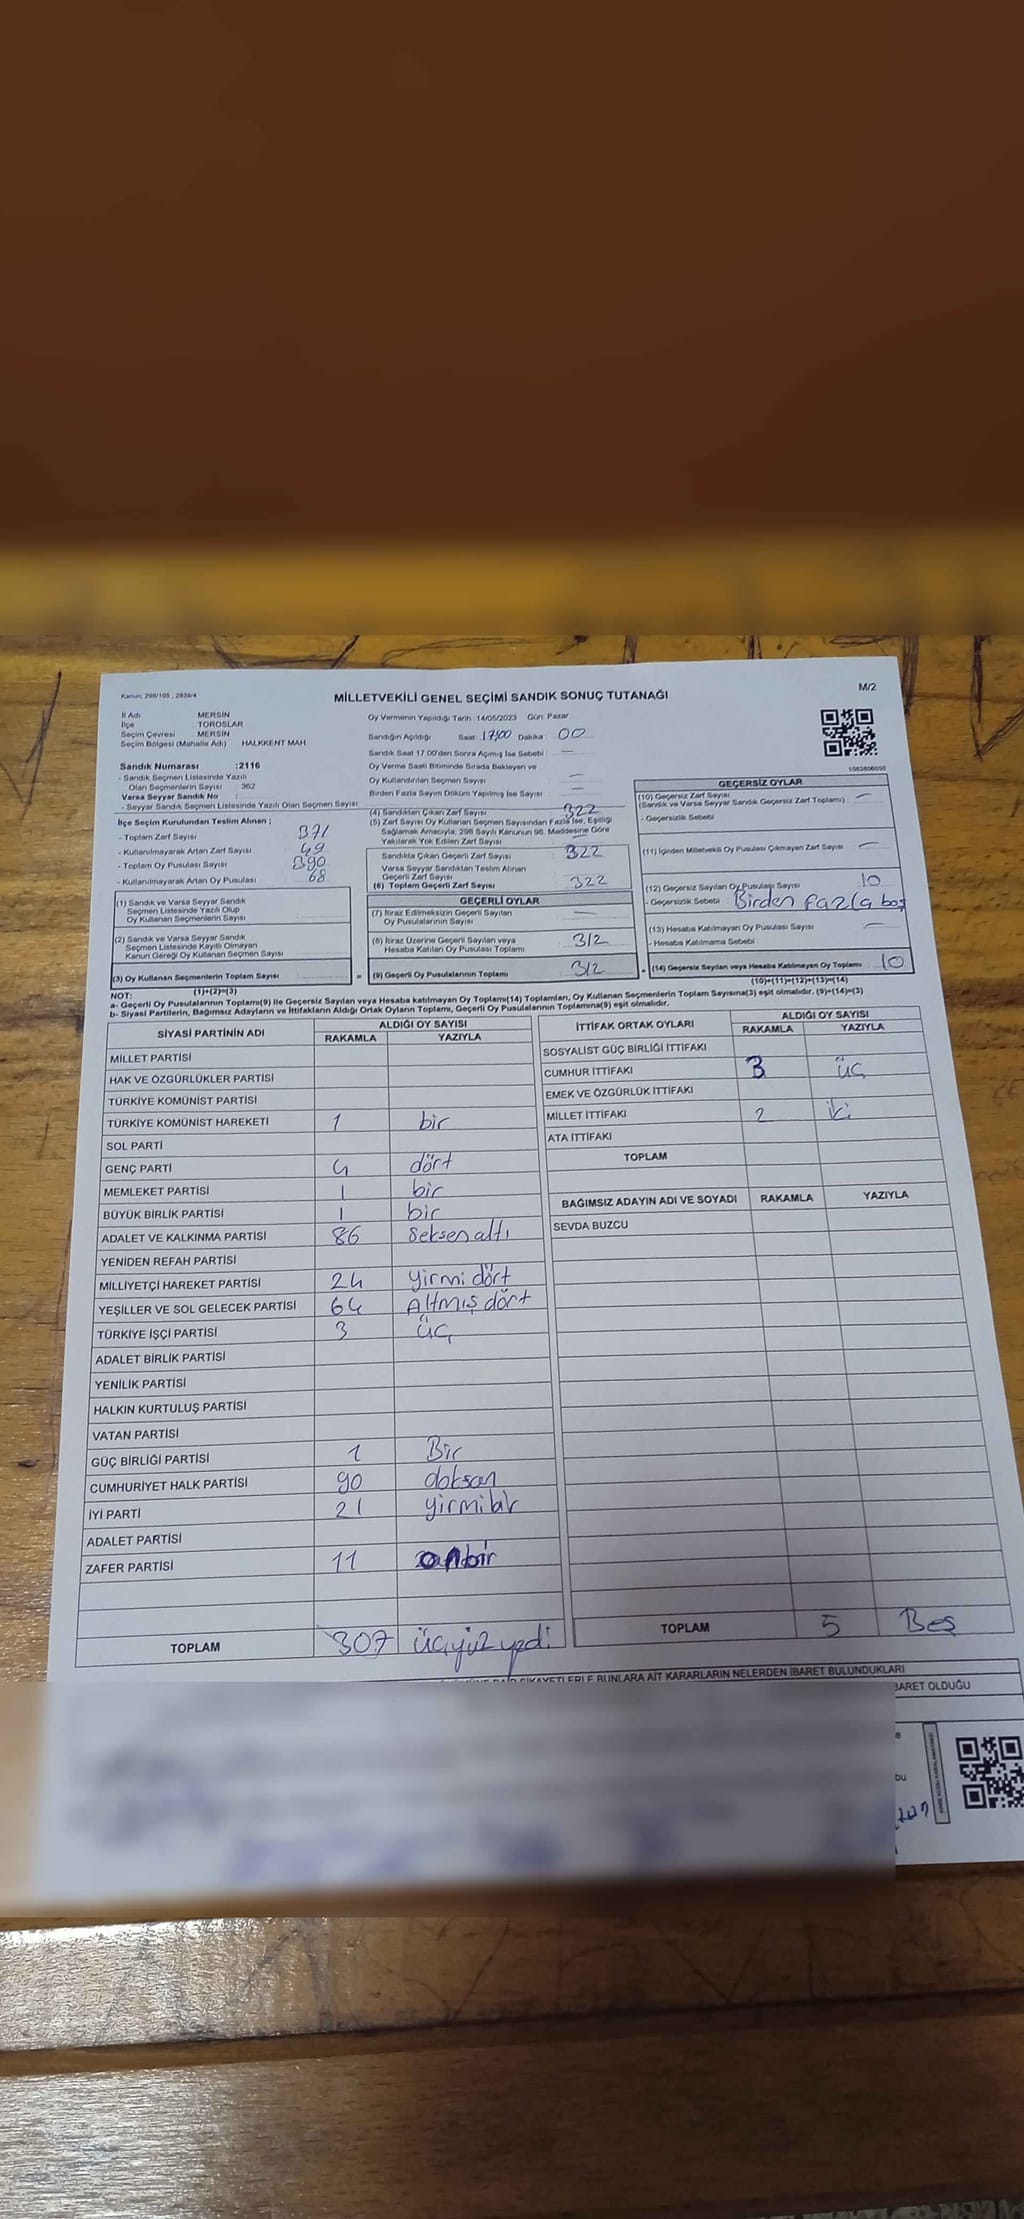 Kanun: 298/105 , 2839/4
MİLLETVEKİLİ GENEL SEÇİMİ SANDIK SONUÇ TUTANAĞI
M/2
İl Adı MERSİN
İlçe : TOROSLAR
Seçim Çevresi MERSİN
Seçim Bölgesi (Mahalle Adı) HALKKENT MAH.
Sandık Numarası :2116
- Sandık Seçmen Listesinde Yazılı
Olan Seçmenlerin Sayısı : 362
Varsa Seyyar Sandık No :
- Seyyar Sandık Seçmen Listesinde Yazılı Olan Seçmen Sayısı
İlçe Seçim Kurulundan Teslim Alınan :
- Toplam Zarf Sayısı 371
- Kullanılmayarak Artan Zarf Sayısı 49
- Toplam Oy Pusulası Sayısı 390
- Kullanılmayarak Artan Oy Pusulası 68
(1) Sandık ve Varsa Seyyar Sandık
Seçmen Listesinde Yazılı Olup
Oy Kullanan Seçmenlerin Sayısı
(2) Sandık ve Varsa Seyyar Sandık
Seçmen Listesinde Kayıtlı Olmayan
Kanun Gereği Oy Kullanan Seçmen Sayısı
(3) Oy Kullanan Seçmenlerin Toplam Sayısı
(1)+(2)=(3)
Oy Vermenin Yapıldığı Tarih : 14/05/2023 Gün: Pazar
Sandığın Açıldığı Saat 17:00 Dakika : 00
Sandık Saat 17.00'den Sonra Açımış İse Sebebi : —
Oy Verme Saati Bitiminde Sırada Bekleyen ve
Oy Kullandırılan Seçmen Sayısı : —
Birden Fazla Sayım Döküm Yapılmış İse Sayısı : —
(4) Sandıktan Çıkan Zarf Sayısı 322
(5) Zarf Sayısı Oy Kullanan Seçmen Sayısından Fazla İse, Eşitliği
Sağlamak Amacıyla, 298 Sayılı Kanunun 98. Maddesine Göre
Yakılarak Yok Edilen Zarf Sayısı —
Sandıkla Çıkan Geçerli Zarf Sayısı 322
Varsa Seyyar Sandıktan Teslim Alınan
Geçerli Zarf Sayısı
(6) Toplam Geçerli Zarf Sayısı 322
GEÇERLİ OYLAR
(7) İtiraz Edilmeksizin Geçerli Sayılan
Oy Pusulalarının Sayısı —
(8) İtiraz Üzerine Geçerli Sayılan veya
Hesaba Katılan Oy Pusulası Toplamı 312
(9) Geçerli Oy Pusulalarının Toplamı 312
1083606050
GEÇERSİZ OYLAR
(10) Geçersiz Zarf Sayısı —
(Sandık ve Varsa Seyyar Sandık Geçersiz Zarf Toplamı)
- Geçersizlik Sebebi
(11) İçinden Milletvekili Oy Pusulası Çıkmayan Zarf Sayısı —
(12) Geçersiz Sayılan Oy Pusulası Sayısı 10
- Geçersizlik Sebebi Birden fazla boş
(13) Hesaba Katılmayan Oy Pusulası Sayısı —
- Hesaba Katılmama Sebebi
(14) Geçersiz Sayılan veya Hesaba Katılmayan Oy Toplamı 10
(10)+(11)+(12)+(13)=(14)
NOT:
a- Geçerli Oy Pusulalarının Toplamı(9) ile Geçersiz Sayılan veya Hesaba katılmayan Oy Toplamı(14) Toplamları, Oy Kullanan Seçmenlerin Toplam Sayısına(3) eşit olmalıdır. (9)+(14)=(3)
b- Siyasi Partilerin, Bağımsız Adayların ve İttifakların Aldığı Ortak Oyların Toplamı, Geçerli Oy Pusulalarının Toplamına(9) eşit olmalıdır.
SİYASİ PARTİNİN ADI ALDIĞI OY SAYISI
RAKAMLA YAZIYLA
MİLLET PARTİSİ
HAK VE ÖZGÜRLÜKLER PARTİSİ
TÜRKİYE KOMÜNİST PARTİSİ
TÜRKİYE KOMÜNİST HAREKETİ 1 bir
SOL PARTİ
GENÇ PARTİ 4 dört
MEMLEKET PARTİSİ 1 bir
BÜYÜK BİRLİK PARTİSİ 1 bir
ADALET VE KALKINMA PARTİSİ 86 Seksen altı
YENİDEN REFAH PARTİSİ
MİLLİYETÇİ HAREKET PARTİSİ 24 yirmi dört
YEŞİLLER VE SOL GELECEK PARTİSİ 64 Altmış dört
TÜRKİYE İŞÇİ PARTİSİ 3 üç
ADALET BİRLİK PARTİSİ
YENİLİK PARTİSİ
HALKIN KURTULUŞ PARTİSİ
VATAN PARTİSİ
GÜÇ BİRLİĞİ PARTİSİ 1 Bir
CUMHURİYET HALK PARTİSİ 90 doksan
İYİ PARTİ 21 yirmi bir
ADALET PARTİSİ
ZAFER PARTİSİ 11 onbir
TOPLAM 307 üçyüz yedi
İTTİFAK ORTAK OYLARI ALDIĞI OY SAYISI
RAKAMLA YAZIYLA
SOSYALİST GÜÇ BİRLİĞİ İTTİFAKI
CUMHUR İTTİFAKI 3 üç
EMEK VE ÖZGÜRLÜK İTTİFAKI
MİLLET İTTİFAKI 2 iki
ATA İTTİFAKI
TOPLAM
BAĞIMSIZ ADAYIN ADI VE SOYADI RAKAMLA YAZIYLA
SEVDA BUZCU
TOPLAM 5 Beş
ŞİKAYETLERLE BUNLARA AİT KARARLARIN NELERDEN İBARET BULUNDUKLARI
BARET OLDUĞU